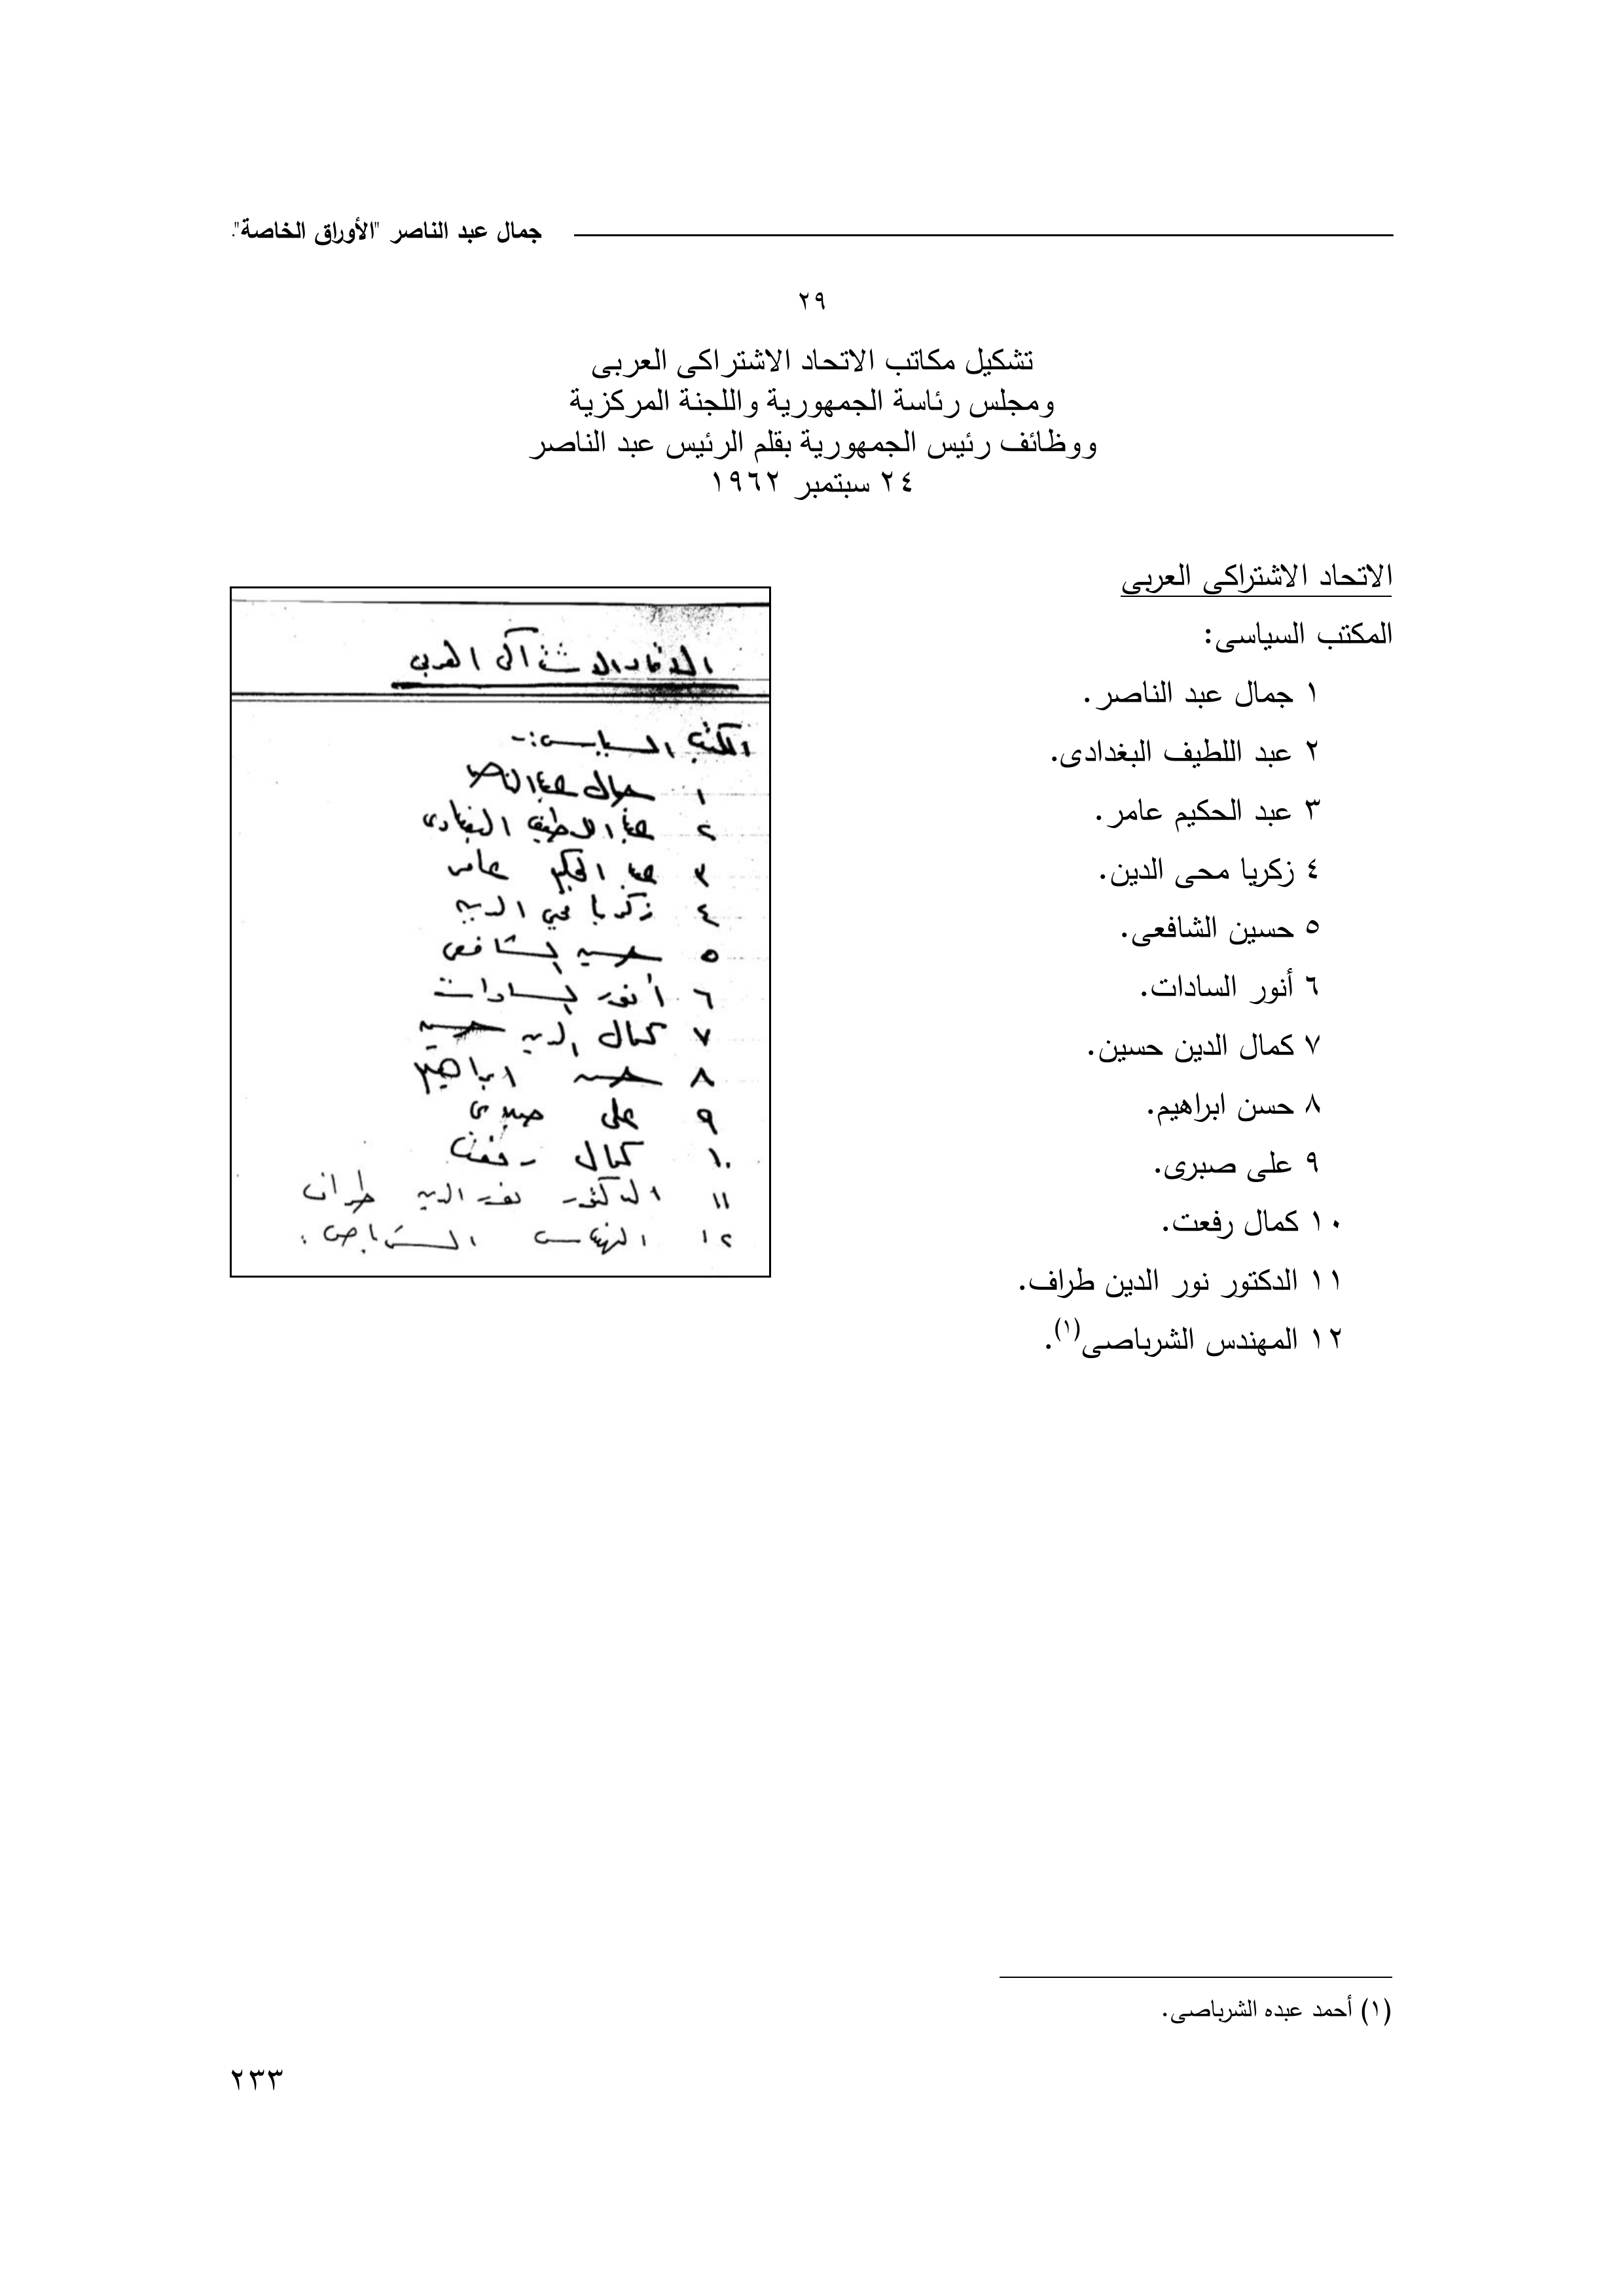 جمال عبد الناصر "الأوراق الخاصة".
٢٩
تشكيل مكاتب الاتحاد الاشتراكى العربى
ومجلس رئاسة الجمهورية واللجنة المركزية
ووظائف رئيس الجمهورية بقلم الرئيس عبد الناصر
٢٤ سبتمبر ١٩٦٢
الاتحاد الاشتراكى العربى
المكتب السياسى:
١ جمال عبد الناصر.
٢ عبد اللطيف البغدادى.
٣ عبد الحكيم عامر.
٤ زكريا محى الدين.
٥ حسين الشافعى.
٦ أنور السادات.
٧ كمال الدين حسين.
٨ حسن ابراهيم.
٩ على صبرى.
١٠ كمال رفعت.
١١ الدكتور نور الدين طراف.
١٢ المهندس الشرباصى(١).
الاتحاد الاشتراكى العربى
المكتب السياسى:-
١ جمال عبد الناصر
٢ عبد اللطيف البغدادى
٣ عبد الحكيم عامر
٤ زكريا محي الدين
٥ حسين الشافعى
٦ أنور السادات
٧ كمال الدين حسين
٨ حسن ابراهيم
٩ على صبرى
١٠ كمال رفعت
١١ الدكتور نور الدين طراف
١٢ المهندس الشرباصى.
(١) أحمد عبده الشرباصى.
٢٣٣